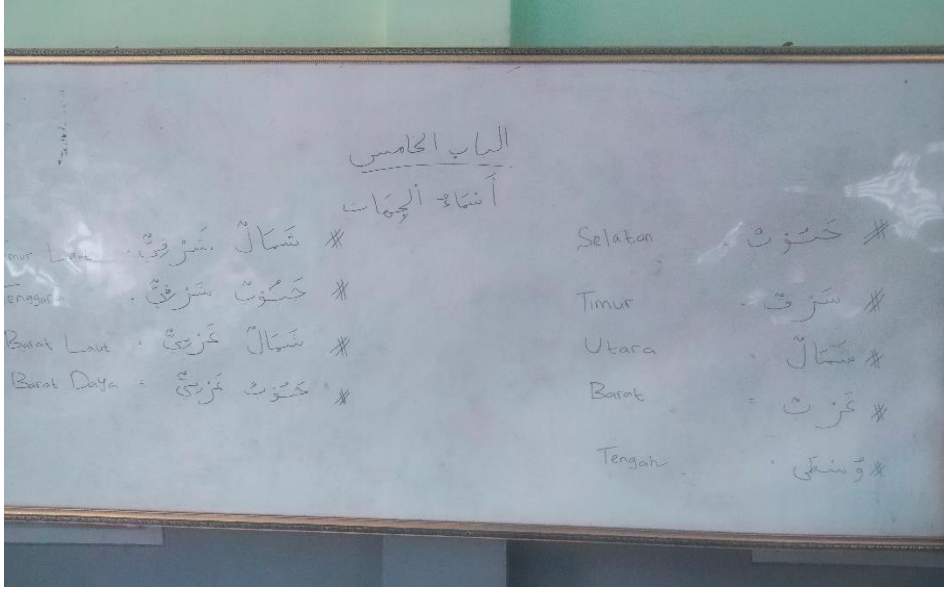 الباب الخامس
أَسْمَاءُ الْجِهَات
# جَنُوْبٌ : Selatan
# شَرْقٌ : Timur
# شَمَالٌ : Utara
# غَرْبٌ = Barat
# وُسْطَى : Tengah
# شَمَالٌ شَرْقِيٌّ : Laut
# جَنُوْبٌ شَرْقِيٌّ :
# شَمَالٌ غَرْبِيٌّ : Barat Laut
# جَنُوْبٌ غَرْبِيٌّ : Barat Daya